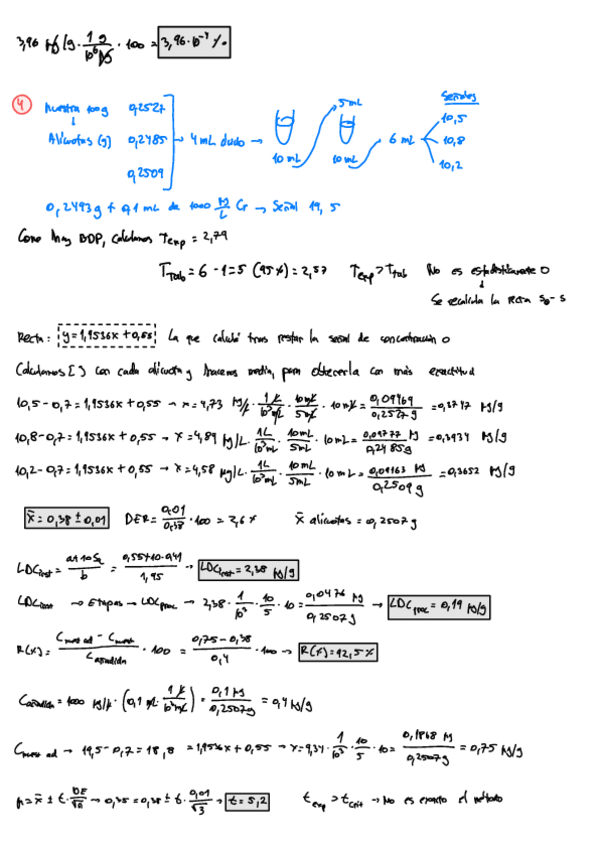 3,96 µg/g · 1 g / 10⁶ µg · 100 = 3,96·10⁻⁴ %
4 Muestra 100g 0,2527
Alícuotas (g) 0,2485 → 4 mL → 10 mL 5 mL 10 mL 6 mL
0,2509
Señales
10,5
10,8
10,2
0,2493 g + 0,1 mL de 1000 µg/L Cr → Señal 19,5
Como hay BDP, calculamos Texp = 2,79
Ttab = 6 - 1 = 5 (95%) = 2,57 Texp > ttab No es estadísticamente 0
Se recalcula la recta S0 - S
Recta: y = 1,9536x + 0,55 La que calculé tras restar la señal de concentración 0
Calculamos [ ] con cada alícuota y hacemos media, para obtenerla con más exactitud
10,5 - 0,7 = 1,9536x + 0,55 → x = 4,73 µg/L · 1 L / 10³ mL · 10 mL / 5 mL · 10 mL = 0,09469 / 0,2527 g = 0,3747 µg/g
10,8 - 0,7 = 1,9536x + 0,55 → x = 4,89 µg/L · 1L / 10³ mL · 10 mL / 5 mL · 10 mL = 0,09777 µg / 0,2485g = 0,3934 µg/g
10,2 - 0,7 = 1,9536x + 0,55 → x = 4,58 µg/L · 1L / 10³ mL · 10 mL / 5 mL · 10 mL = 0,09163 µg / 0,2509 g = 0,3652 µg/g
x̄ = 0,38 ± 0,01 DER = 0,01 / 0,38 · 100 = 2,6 % x̄ alícuotas = 0,2507 g
= 0,55+10·0,41 / 1,95 → LDCinst = 2,38 µg/g
LDCinst → Etapas → LDCproc → 2,38 · 1 / 10³ · 10 / 5 · 10 = 0,0476 µg / 0,2507 g → LDCproc = 0,19 µg/g
R(%) = Cmuest ad - Cmuest / Cañadida · 100 = 0,75 - 0,38 / 0,4 · 100 → R(%) = 92,5 %
Cañadida = 1000 µg/L · (0,1 mL · 1 L / 10³ mL) = 0,1 µg / 0,2507g = 0,4 µg/g
Cmuest ad → 19,5 - 0,7 = 18,8 = 1,9536x + 0,55 → x = 9,34 · 1 / 10³ · 10 / 5 · 10 = 0,1868 µg / 0,2507g = 0,75 µg/g
µ = x̄ ± t · DE / √n → 0,35 = 0,38 ± t · 0,01 / √3 → t = 5,2 texp > tcrit → No es exacto el método